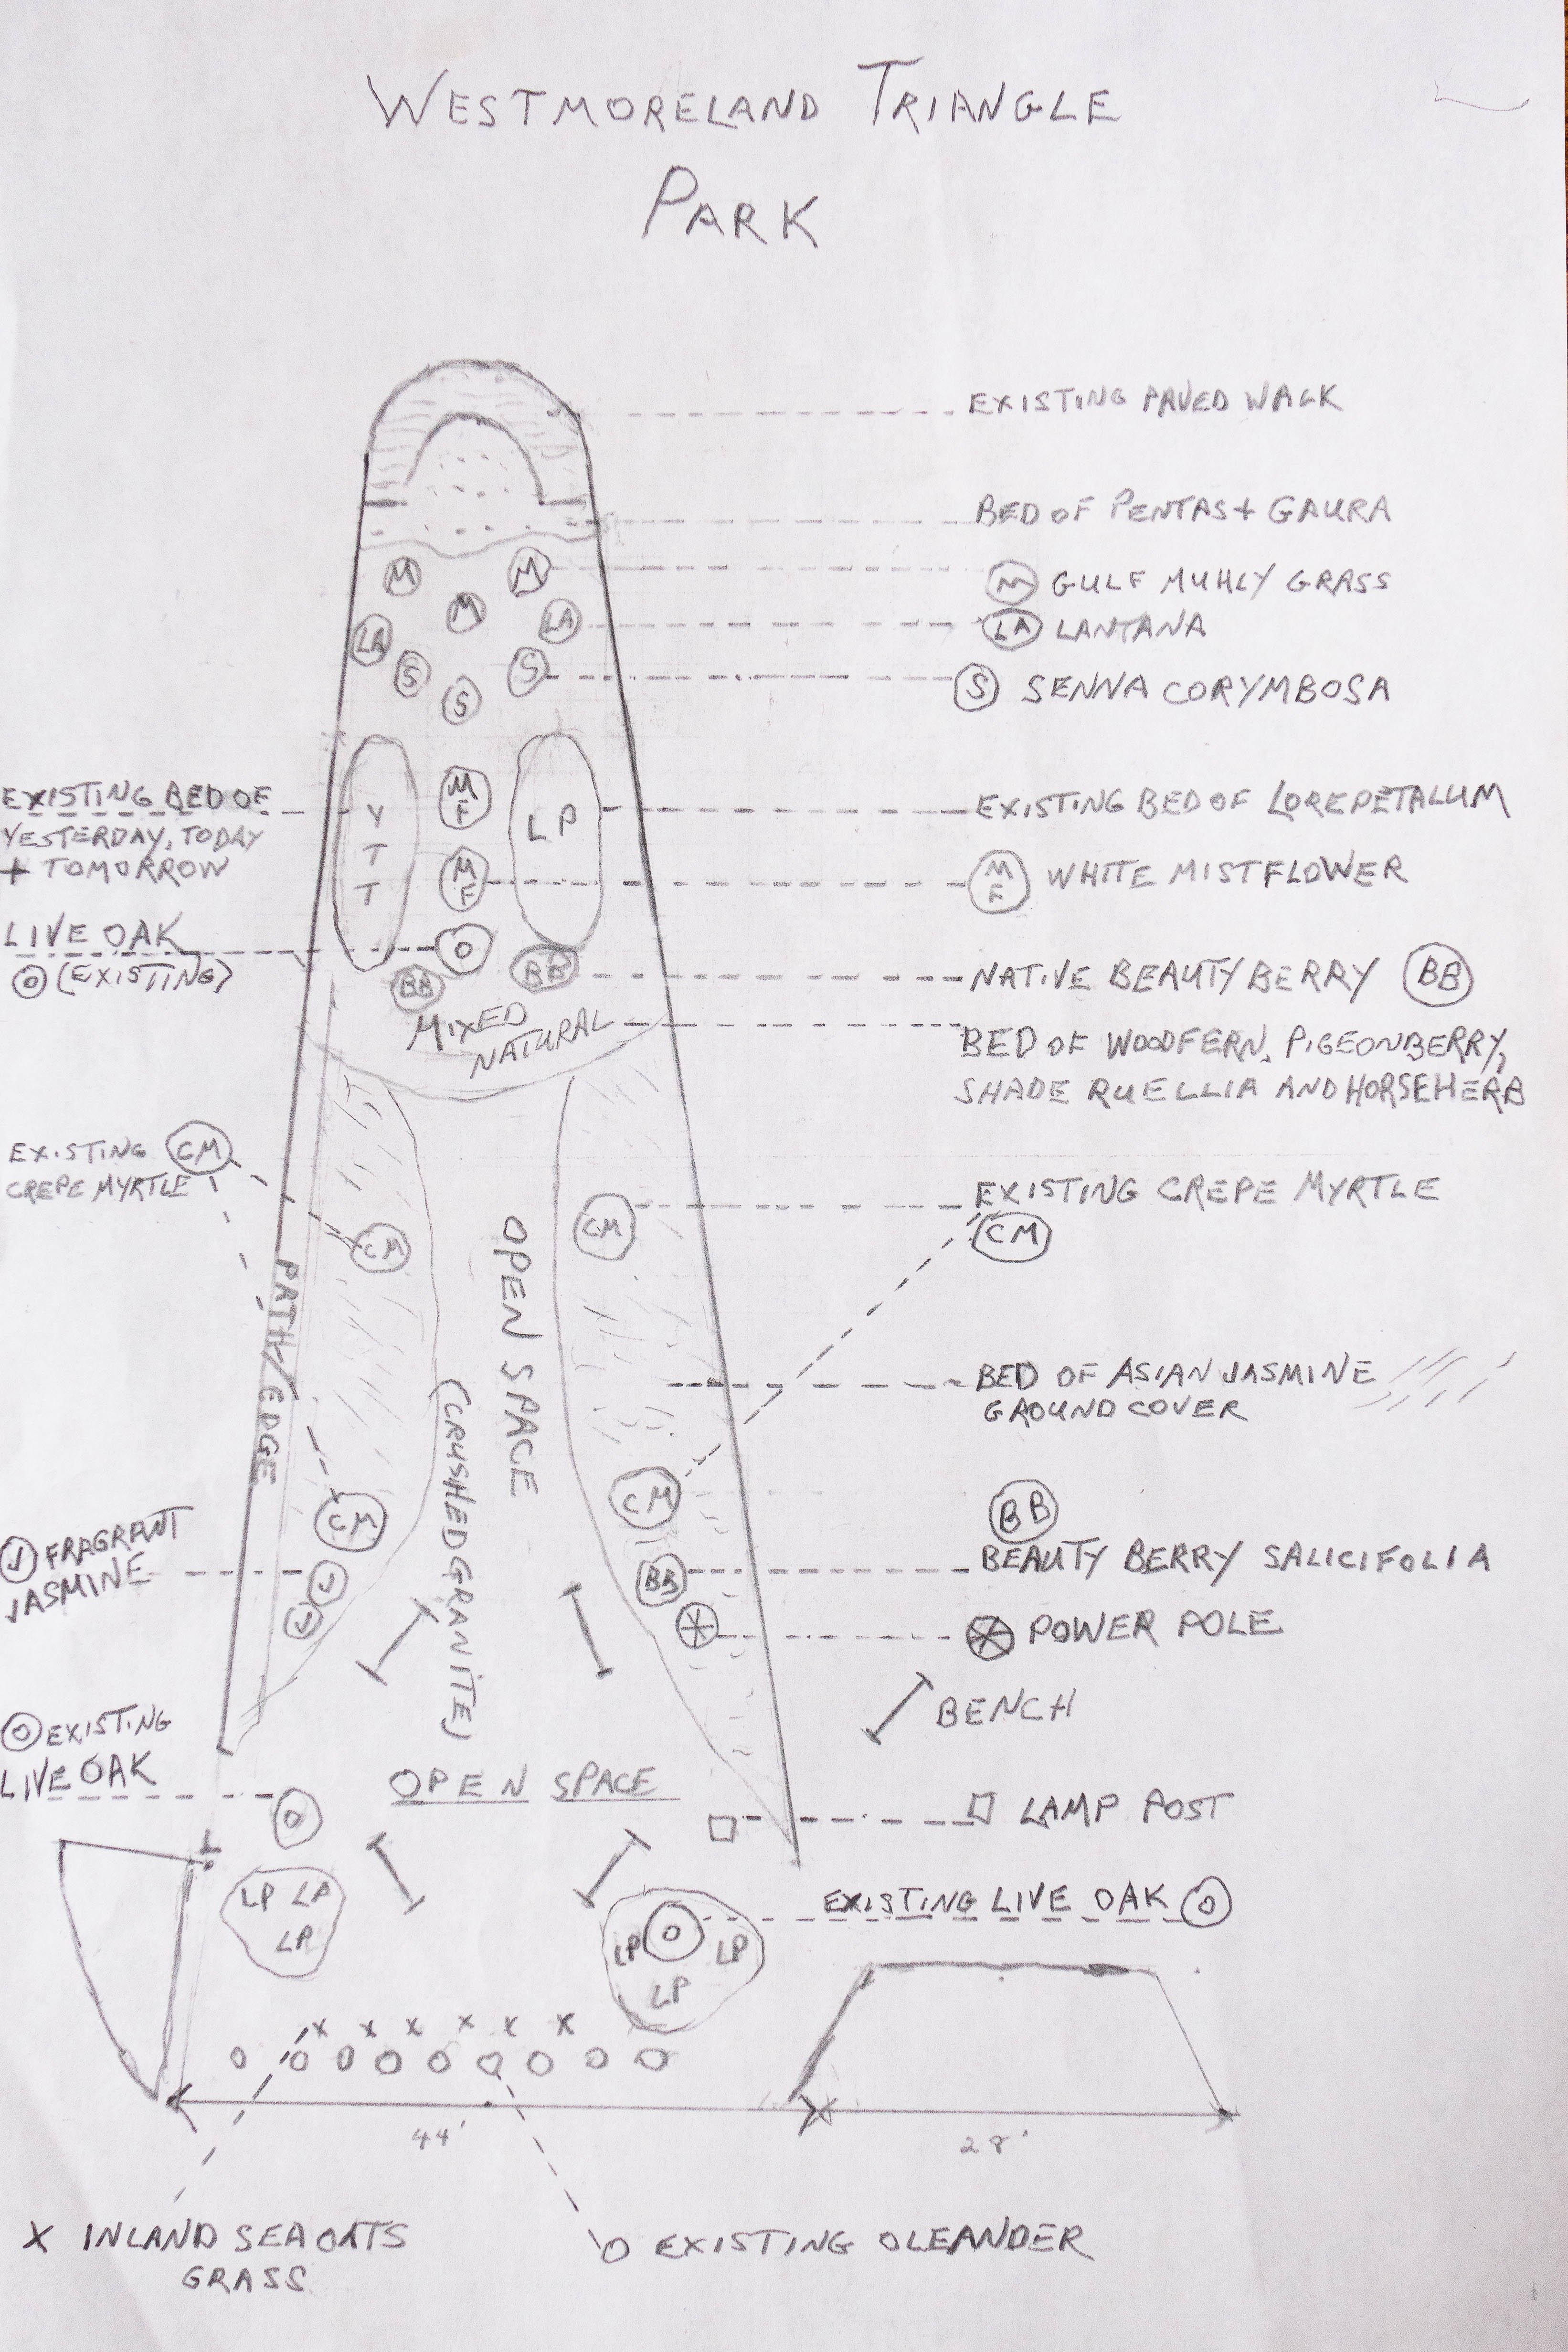 WESTMORELAND TRIANGLE
PARK
EXISTING PAVED WALK
BED OF PENTAS + GAURA
M M
M GULF MUHLY GRASS
M
LA LA
LA LANTANA
S S
S
S SENNA CORYMBOSA
EXISTING BED OF
YESTERDAY, TODAY
+ TOMORROW
Y
T
T
M
F
L P
EXISTING BED OF LOREPETALUM
M
F
M
F WHITE MISTFLOWER
LIVE OAK
O (EXISTING)
O
BB BB
NATIVE BEAUTY BERRY BB
MIXED
NATURAL
BED OF WOODFERN, PIGEONBERRY,
SHADE RUELLIA AND HORSEHERB
EXISTING CM
CREPE MYRTLE
CM CM
EXISTING CREPE MYRTLE
CM
PATH/EDGE
OPEN SPACE
(CRUSHED GRANITE)
BED OF ASIAN JASMINE
GROUND COVER
CM CM
J FRAGRANT
JASMINE
J
J
BB
BB
BEAUTY BERRY SALICIFOLIA
POWER POLE
BENCH
O EXISTING
LIVE OAK
OPEN SPACE
O
LAMP POST
LP LP
LP
EXISTING LIVE OAK O
LP O LP
LP
X X X X X X
O O O O O O O O O
44' 28'
X INLAND SEA OATS
GRASS
O EXISTING OLEANDER